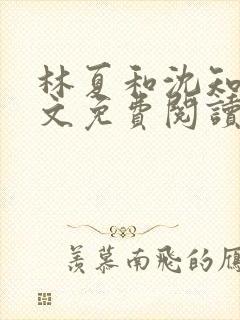 林夏和沈知
文免費閱讀
羨慕南飛的雁